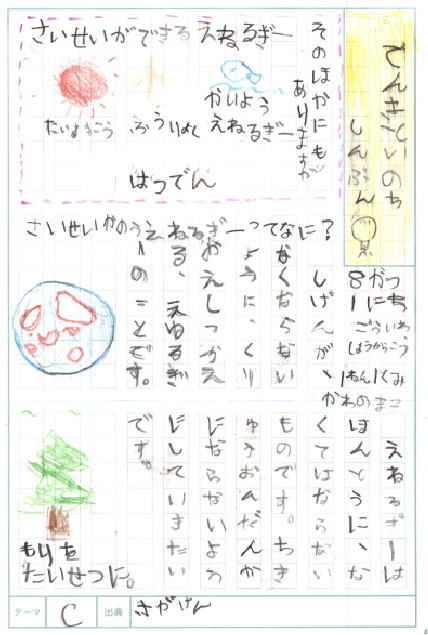 でんきといのち
しんぶん
8がつ
1にち
1ねん1くみ
かわのまこ
そのほかにも
ありますが
さいせいができるえねるぎー
たいようこう
ふうりょく
かいよう
えねるぎー
はつでん
さいせいかのうえねるぎーってなに？
しげんが、
なくならない
ように、くり
おえしつかえ
る、えねるぎ
ーのことです。
えねるぎーは
ほんとうに、な
くてはならない
ものです。ちき
ゅうおんだんか
にならないよう
にしていきたい
です。
もりを
たいせつに。
テーマ C 出典 きがけん